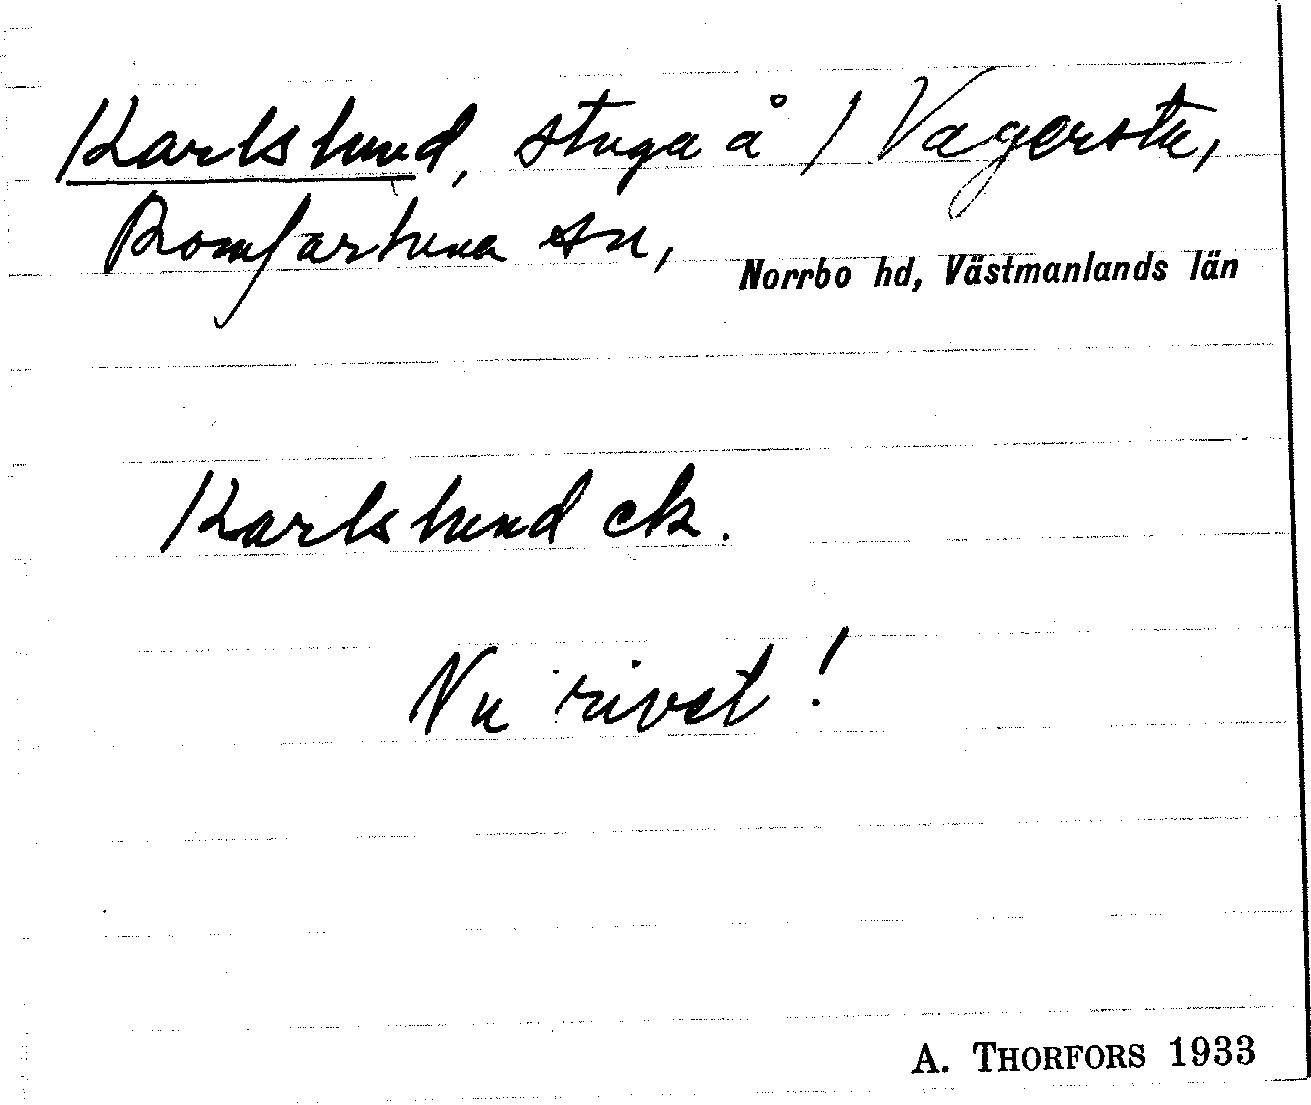 Karlslund, stuga å / Vagersta,
Romfartuna sn, Norrbo hd, Västmanlands län
Karlslund ek.
Nu rivet!
A. THORFORS 1933